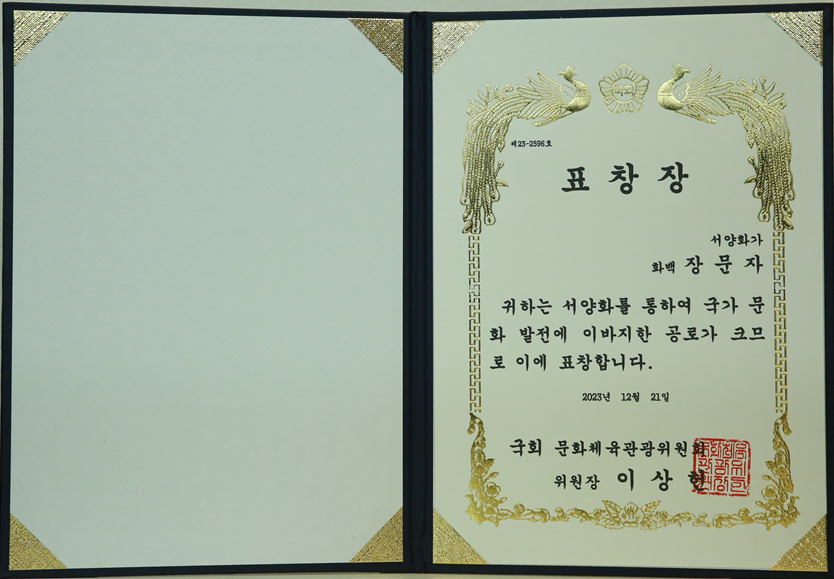 제23-2596호
표 창 장
서양화가
화백 장 문 자
귀하는 서양화를 통하여 국가 문
화 발전에 이바지한 공로가 크므
로 이에 표창합니다.
2023년 12월 21일
국회 문화체육관광위원회
위원장 이 상 헌